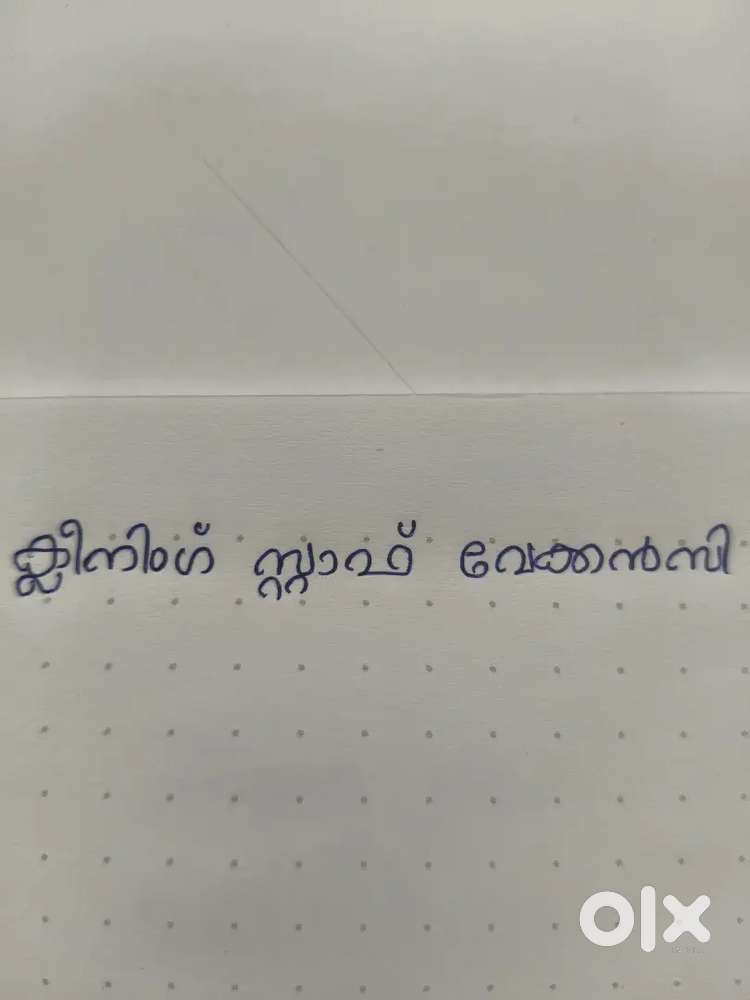 ക്ലീനിംഗ് സ്റ്റാഫ് വേക്കൻസി
olx